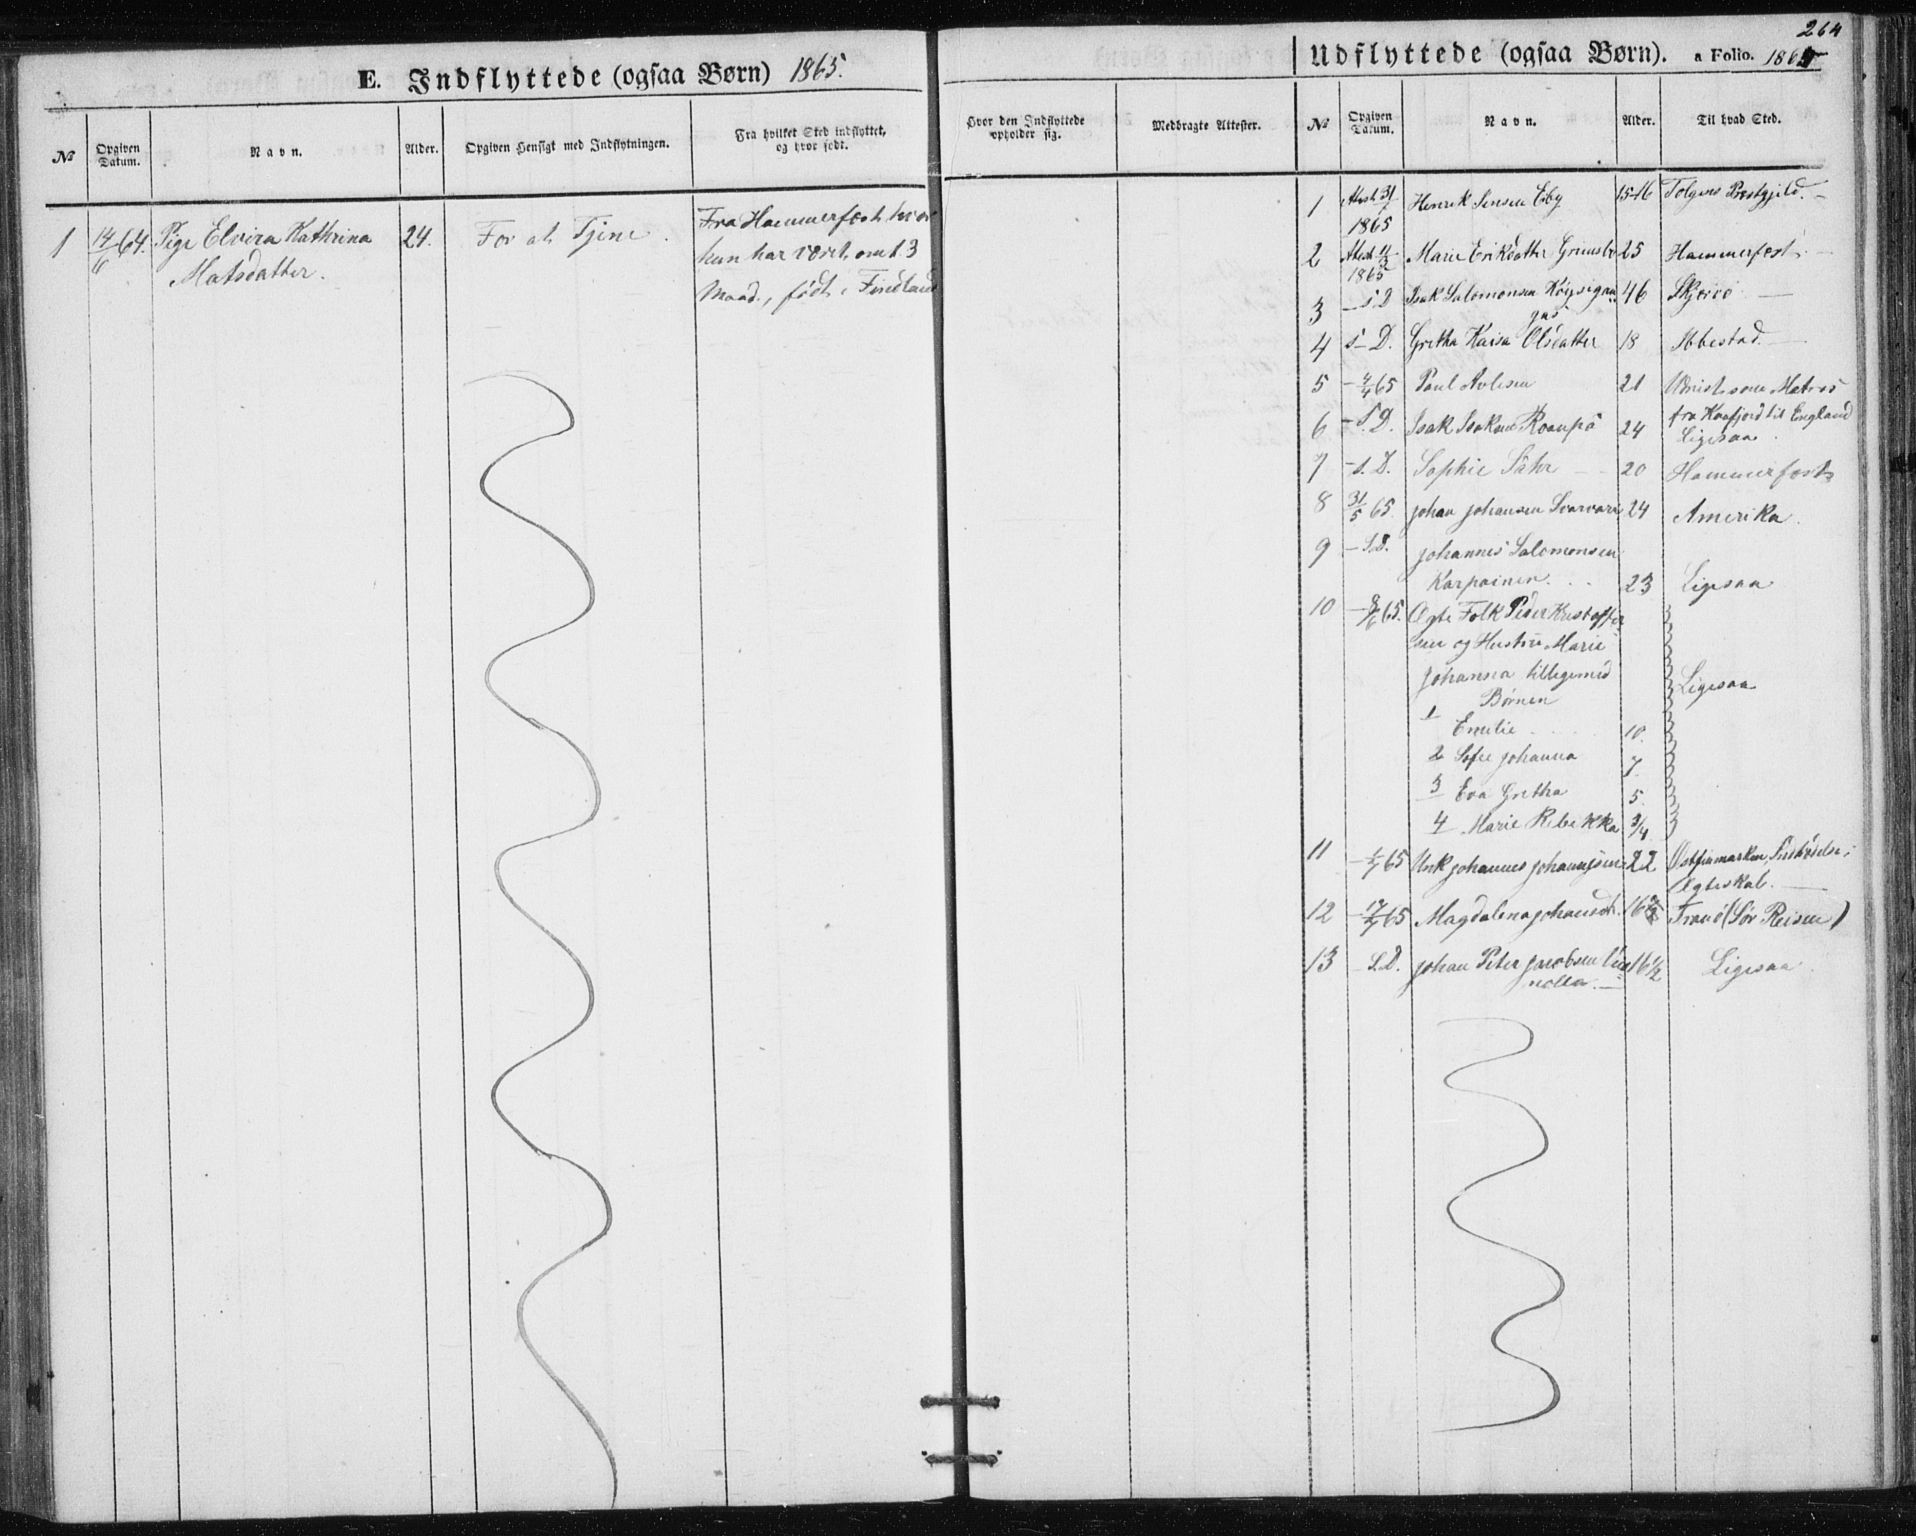 264
E. Indflyttede (ogsaa Børn) 1865.
№
Opgiven Datum.
Navn.
Alder.
Opgiven Hensigt med Indflytningen.
Fra hvilket Sted indflyttet,
og hvor født.
1 14/6 64. Pige Elvira Kathrina 24. For at Tjene. Fra Hammerfest hvor
Matsdatter. hun har været omt. 3
Maad., født i Finland
Udflyttede (ogsaa Børn). a Folio. 1865
Hvor den Indflyttede
opholder sig.
Medbragte Attester.
№
Opgiven
Datum.
Navn.
Alder.
Til hvad Sted.
1 Attest 31/1 Henrik Jensen Eiby 15-16 Tolgens Prestgjeld. –
1865
2 Attest Marie Eriksdatter 25 Hammerfest. –
1865
3 – S D Isak Salomonsen 46 Skjervö –
4 S – D. Gretha Kaisa Olsdatter 18 Ibbestad. –
5 – 4/4 65 Paul 21 som Matros
fra Kaafjord til England
6 – S. D. Isak Isaksen 24 Ligesaa
7 – S. D. Sophie 20 Hammerfest
8 31/5 65. Johan Johansen 24 Amerika.
9 – S. D. Johannes Salomonsen
Karpainen. . . 23 Ligesaa
10 – 8/6 65. Ægte Folk Peder Kristoffer
sen og Hustru Marie
Johanna tilligemed Ligesaa
Børnene
1 Emilie 10.
2 Sofie Johanna 7.
3 Eva Gretha 5.
4 Marie Rebekka 3/4
11 – 65 Unk Johannes Johannesen 22 Østfinmarken, Indtrædelse i
Ægteskab. –
12 – 17/7 65 Magdalena Johansdt. 16 Tranö (Sör Reisen)
13 – S. D. Johan Peter Jacobsen 16 1/2 Ligesaa